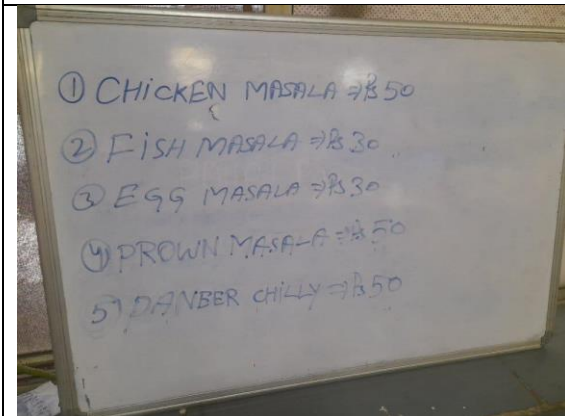 ① CHiCKEN MASALA ⇒ Rs 50
② FiSH MASALA ⇒ Rs 30
③ EGG MASALA ⇒ Rs 30
④ PROWN MASALA ⇒ Rs 50
5) PANBER CHILLY ⇒ Rs 50